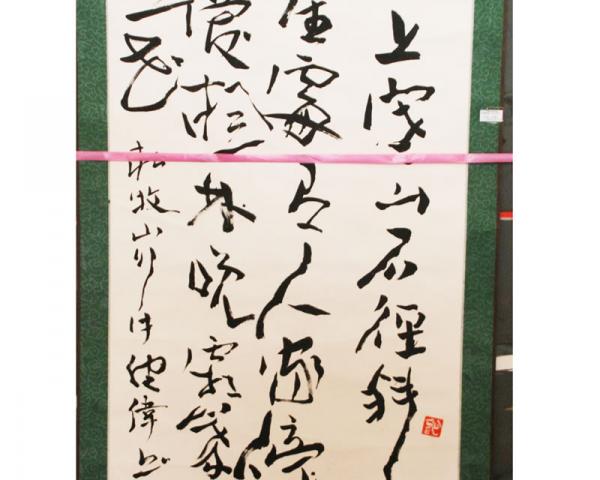 上寒山石徑斜
生處有人家停
愛楓林晚霜葉
花
杜牧山行 偉书